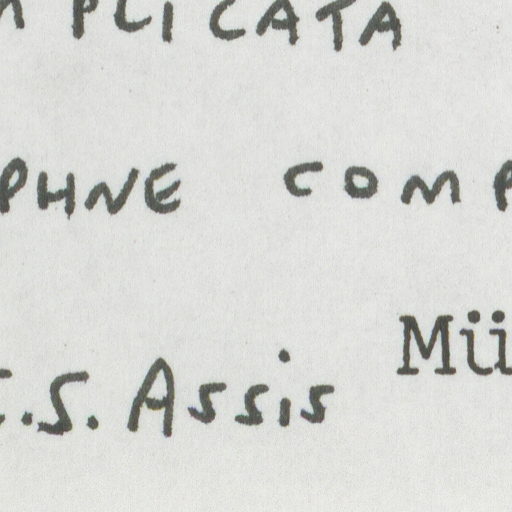 MPLICATA
PHNE COMP
Mü
C.S. Assis